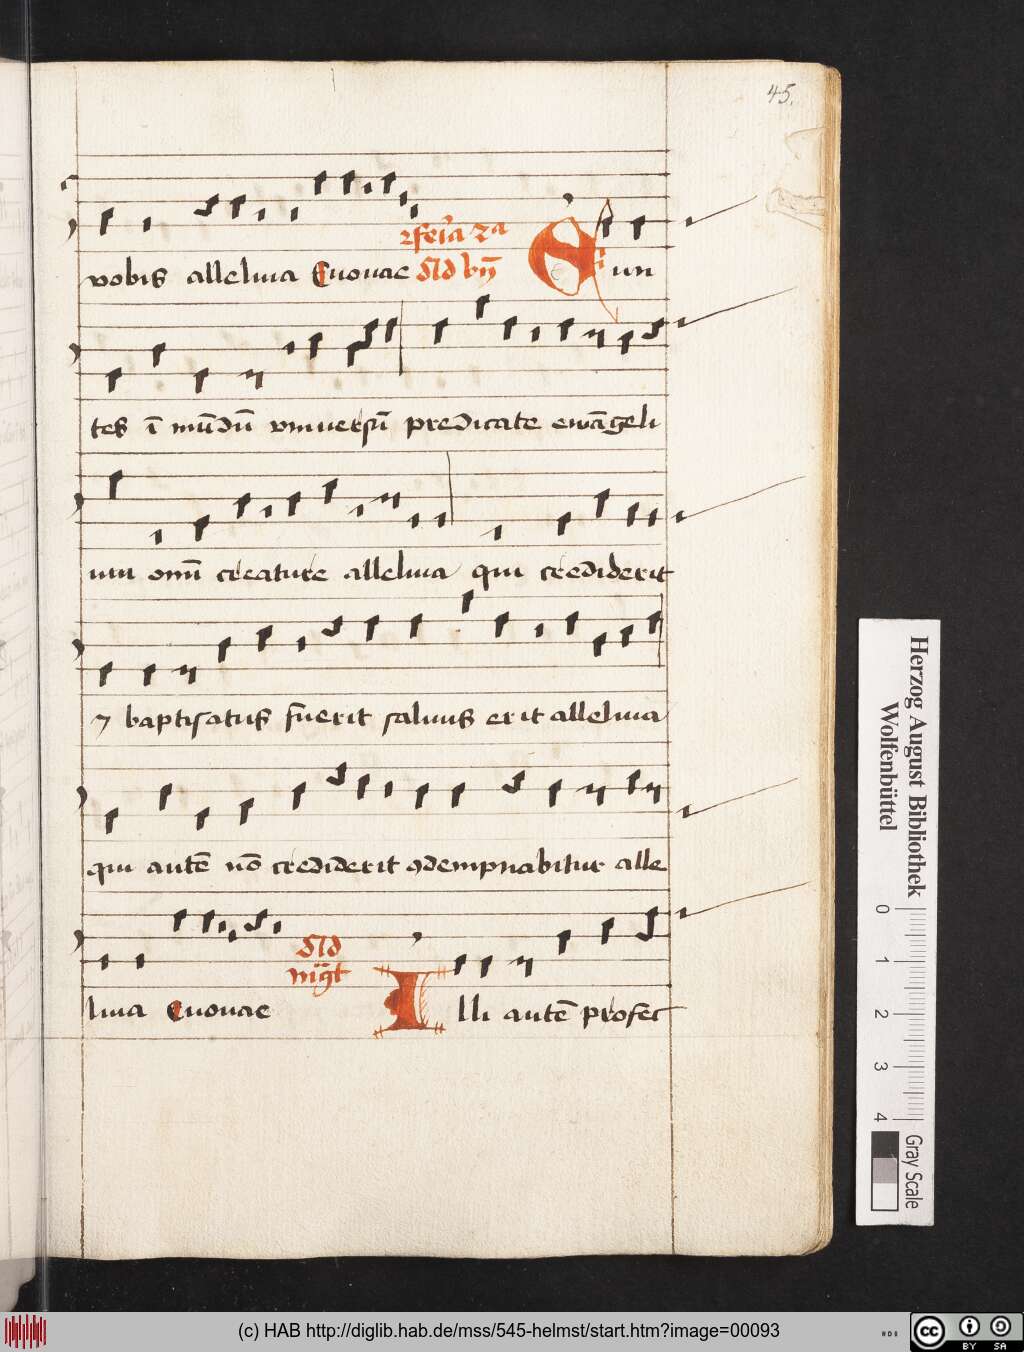 45.
vobis alleluia Euouae
feria 2a
Ad bn̄
Eun
tes ī mūdū vniuersū predicate ewāgeli
um omī creature alleluia qui crediderit
⁊ baptisatus fuerit saluus erit alleluia
qui autē nō crediderit ꝯdempnabitur alle
luia Euouae
Ad
Illi autē profec
Herzog August Bibliothek
Wolfenbüttel
0 1 2 3 4
Gray Scale
(c) HAB http://diglib.hab.de/mss/545-helmst/start.htm?image=00093
cc BY SA